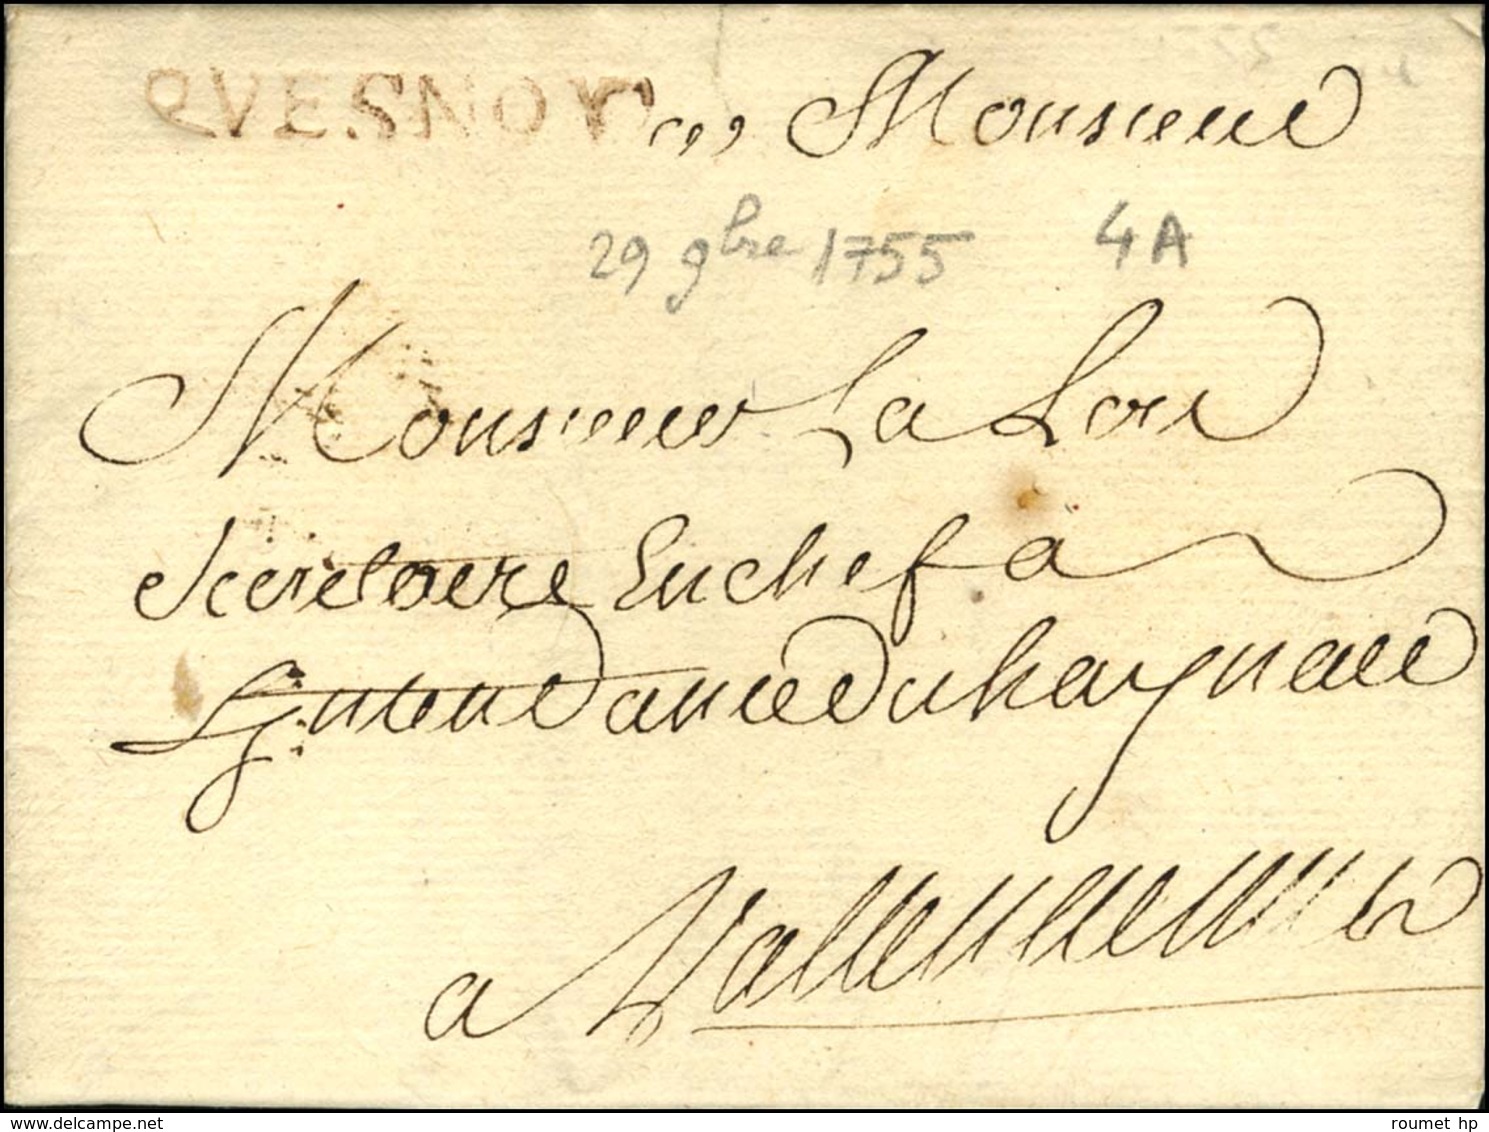 QVESNOY A Monsieur
29 9bre 1755 4A
Monsieur La Loi
Secretaire En chef a
L'intendance Du haynau
a Vallenciennes
delcampe.net
roumet hp